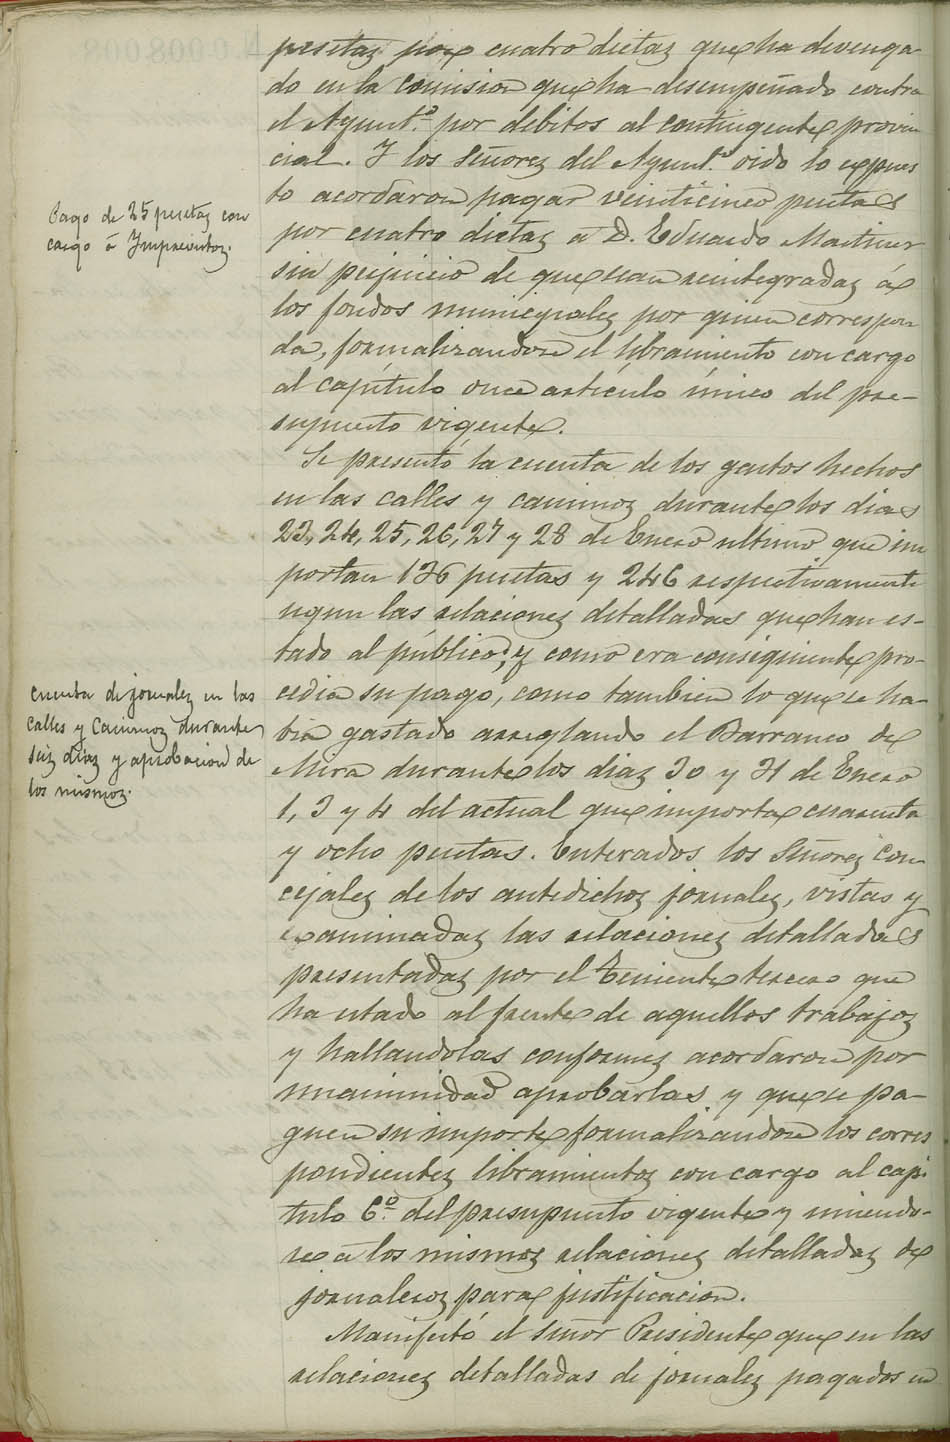 pesetas por cuatro dietas que ha devenga
do en la comision que ha desempeñado contra
el Ayunt.º por debitos al contingente provin
cial. Y los Señores del Ayunt.º oido lo expues
to acordaron pagar veinticinco pesetas
Pago de 25 pesetas con
cargo á Imprevistos.
por cuatro dietas a D. Eduardo Martinez
sin perjuicio de que sean reintegradas á
los fondos municipales por quien correspon
da, formalizandose el libramiento con cargo
al capítulo once artículo único del pre-
supuesto vigente.
Se presentó la cuenta de los gastos hechos
en las calles y caminos durante los dias
23, 24, 25, 26, 27 y 28 de Enero ultimo que im
portan 136 pesetas y 246 respectivamente
segun las relaciones detalladas que han es-
tado al público; y como era consiguiente pro-
cedia su pago, como tambien lo que se ha-
cuenta de jornales en las
calles y Caminos durante
seis dias y aprobacion de
los mismos.
bia gastado arreglando el Barranco de
Mira durante los dias 30 y 31 de Enero
1, 3 y 4 del actual que importa cuarenta
y ocho pesetas. Enterados los Señores con
cejales de los antedichos jornales, vistas y
examinadas las relaciones detalladas
presentadas por el Teniente tercero que
ha estado al frente de aquellos trabajos
y hallandolas conformes acordaron por
unanimidad aprobarlas y que se pa-
guen su importe formalizandose los corres
pondientes libramientos con cargo al capi
tulo 6.º del presupuesto vigente y uniendo-
se á los mismos relaciones detalladas de
jornaleros para justificacion.
Manifestó el Señor Presidente que en las
relaciones detalladas de jornales pagados en